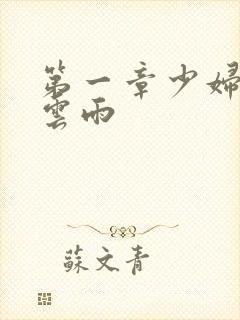 第一章少婦
雲雨
蘇文青